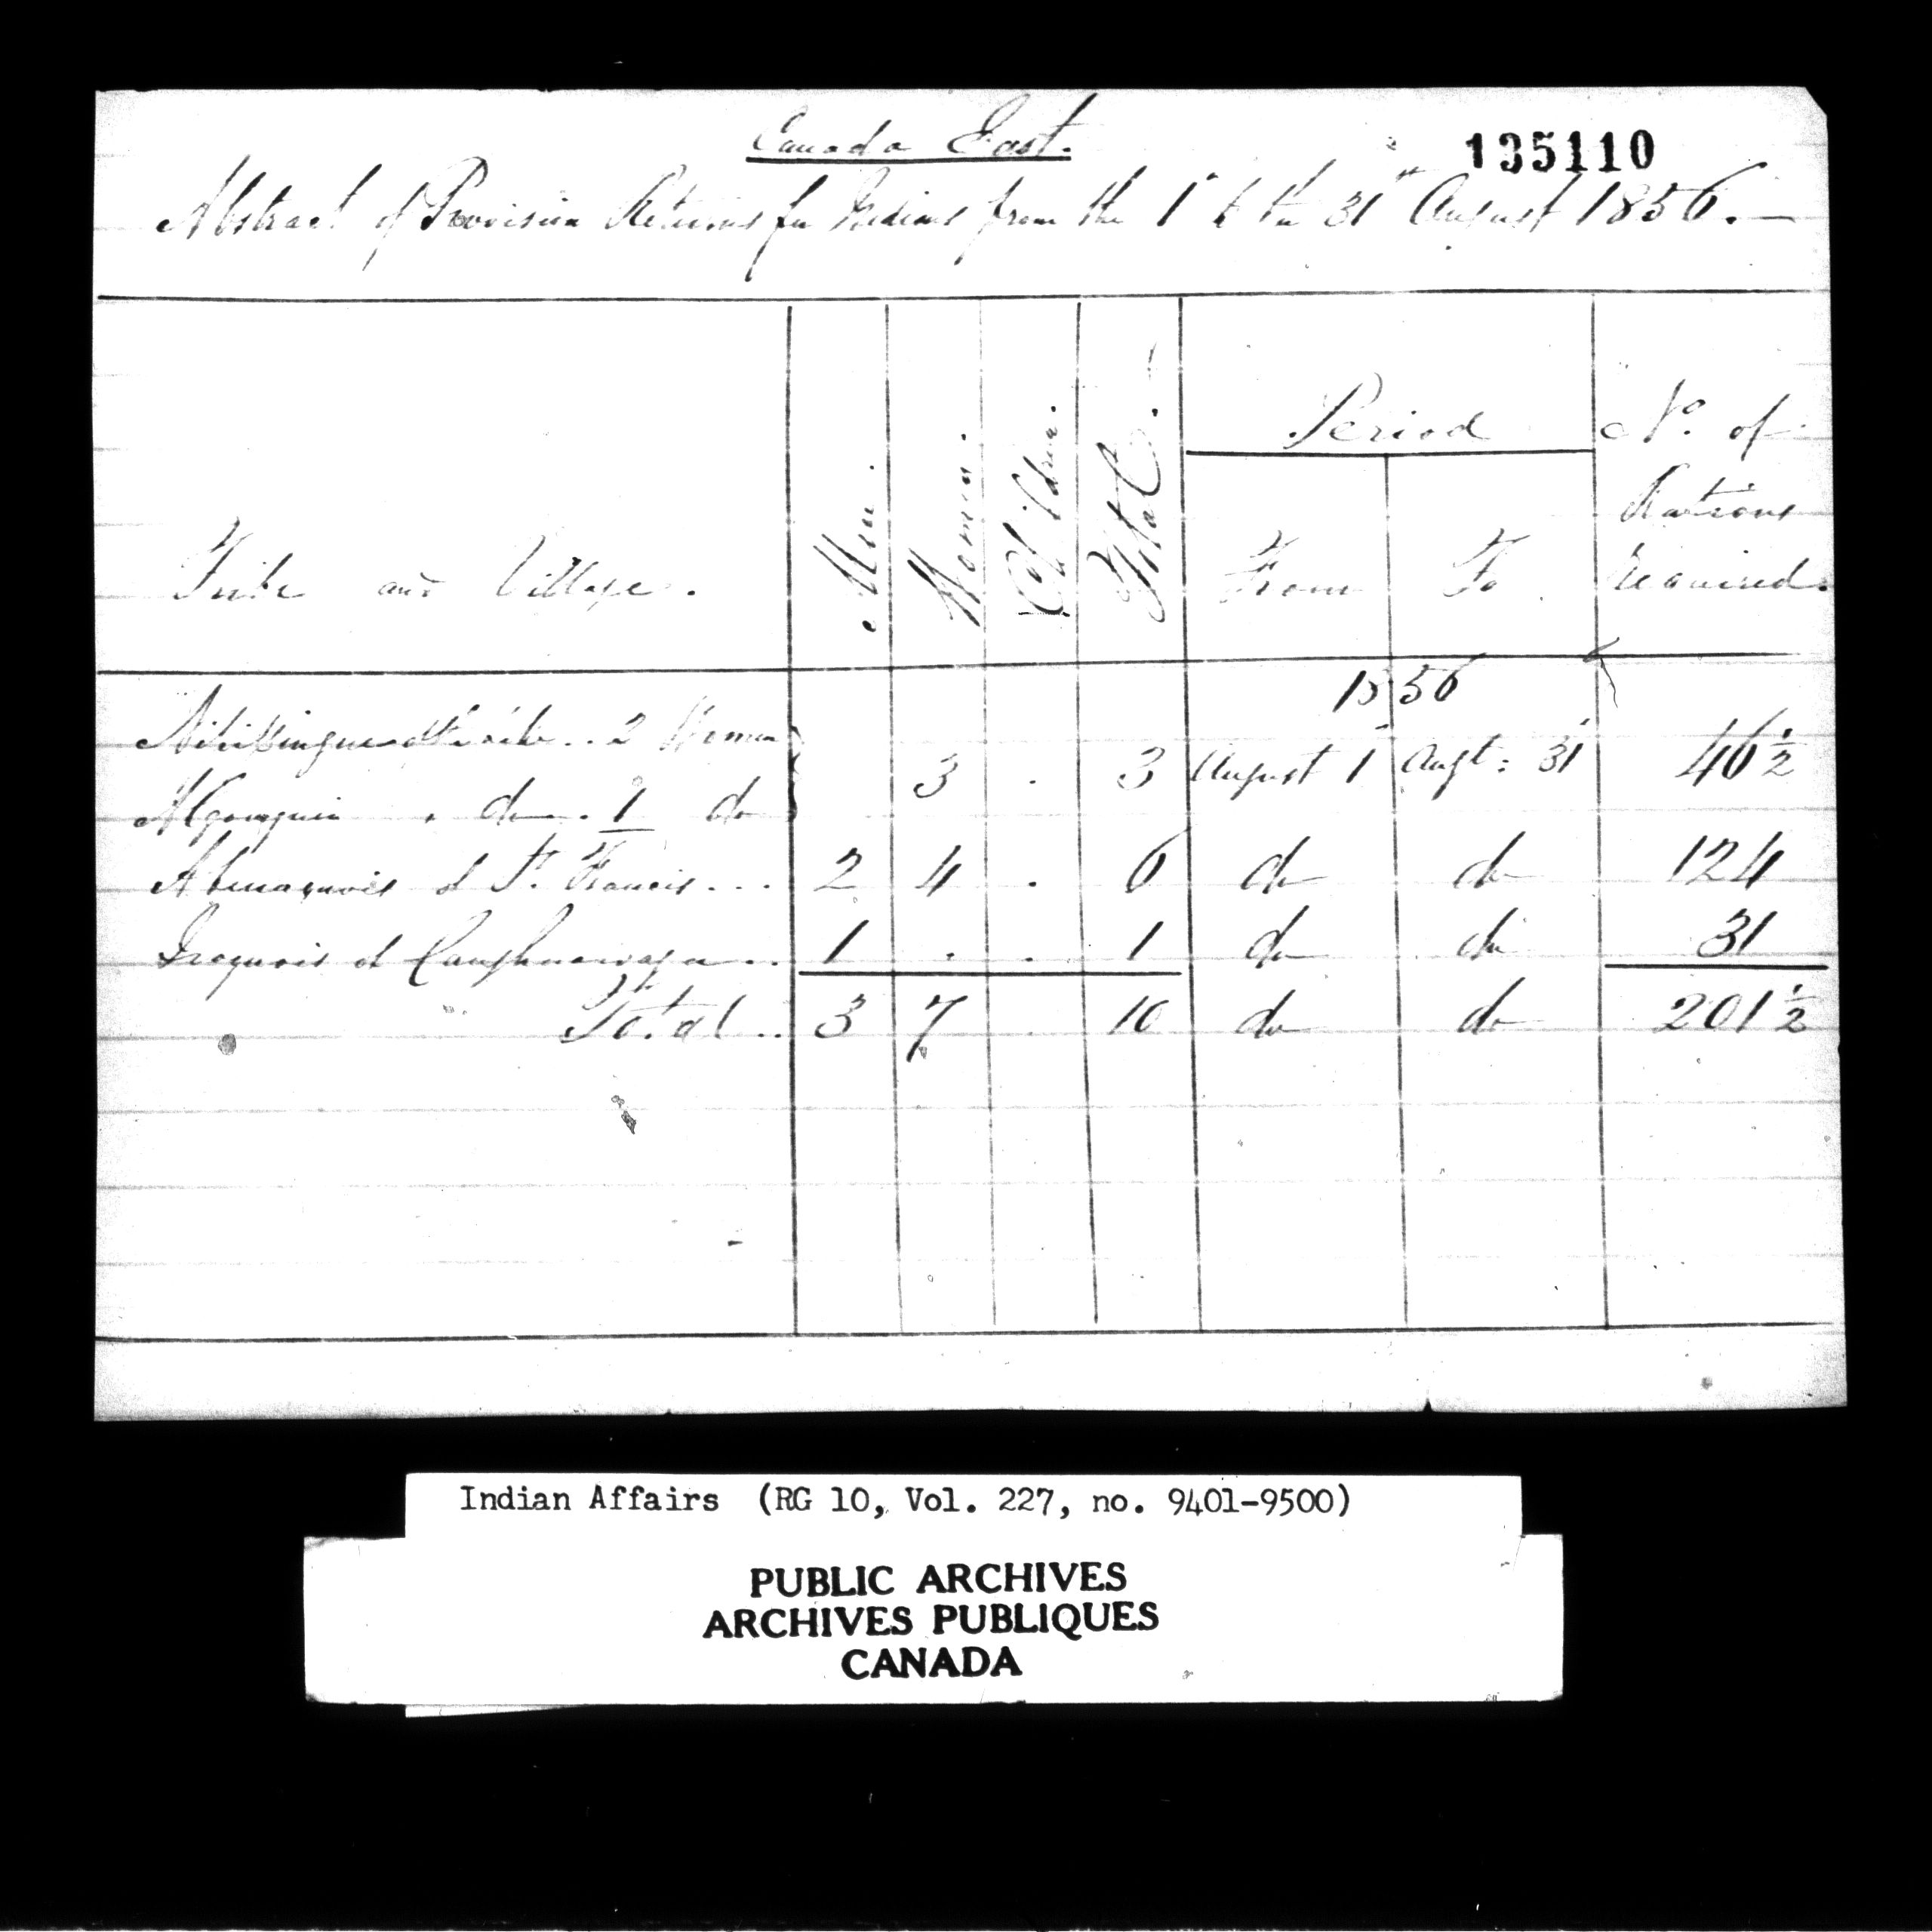 Canada East.
135110
Abstract of Provision Returns for Indians from the 1st to the 31st August 1856.—
Tribe and Village.
Men.
Women.
Children.
Total.
Period
From
To
No. of
Rations
required.
1856
2 Women
3 . 3 August 1 Augt: 31 46 1/2
Algonquin . do . 1 do
Abenaquois of St. Francis... 2 4 . 6 do do 124
Iroquois of Caughnawaga.. 1 . . 1 do do 31
Total.. 3 7 . 10 do do 201 1/2
Indian Affairs (RG 10, Vol. 227, no. 9401-9500)
PUBLIC ARCHIVES
ARCHIVES PUBLIQUES
CANADA